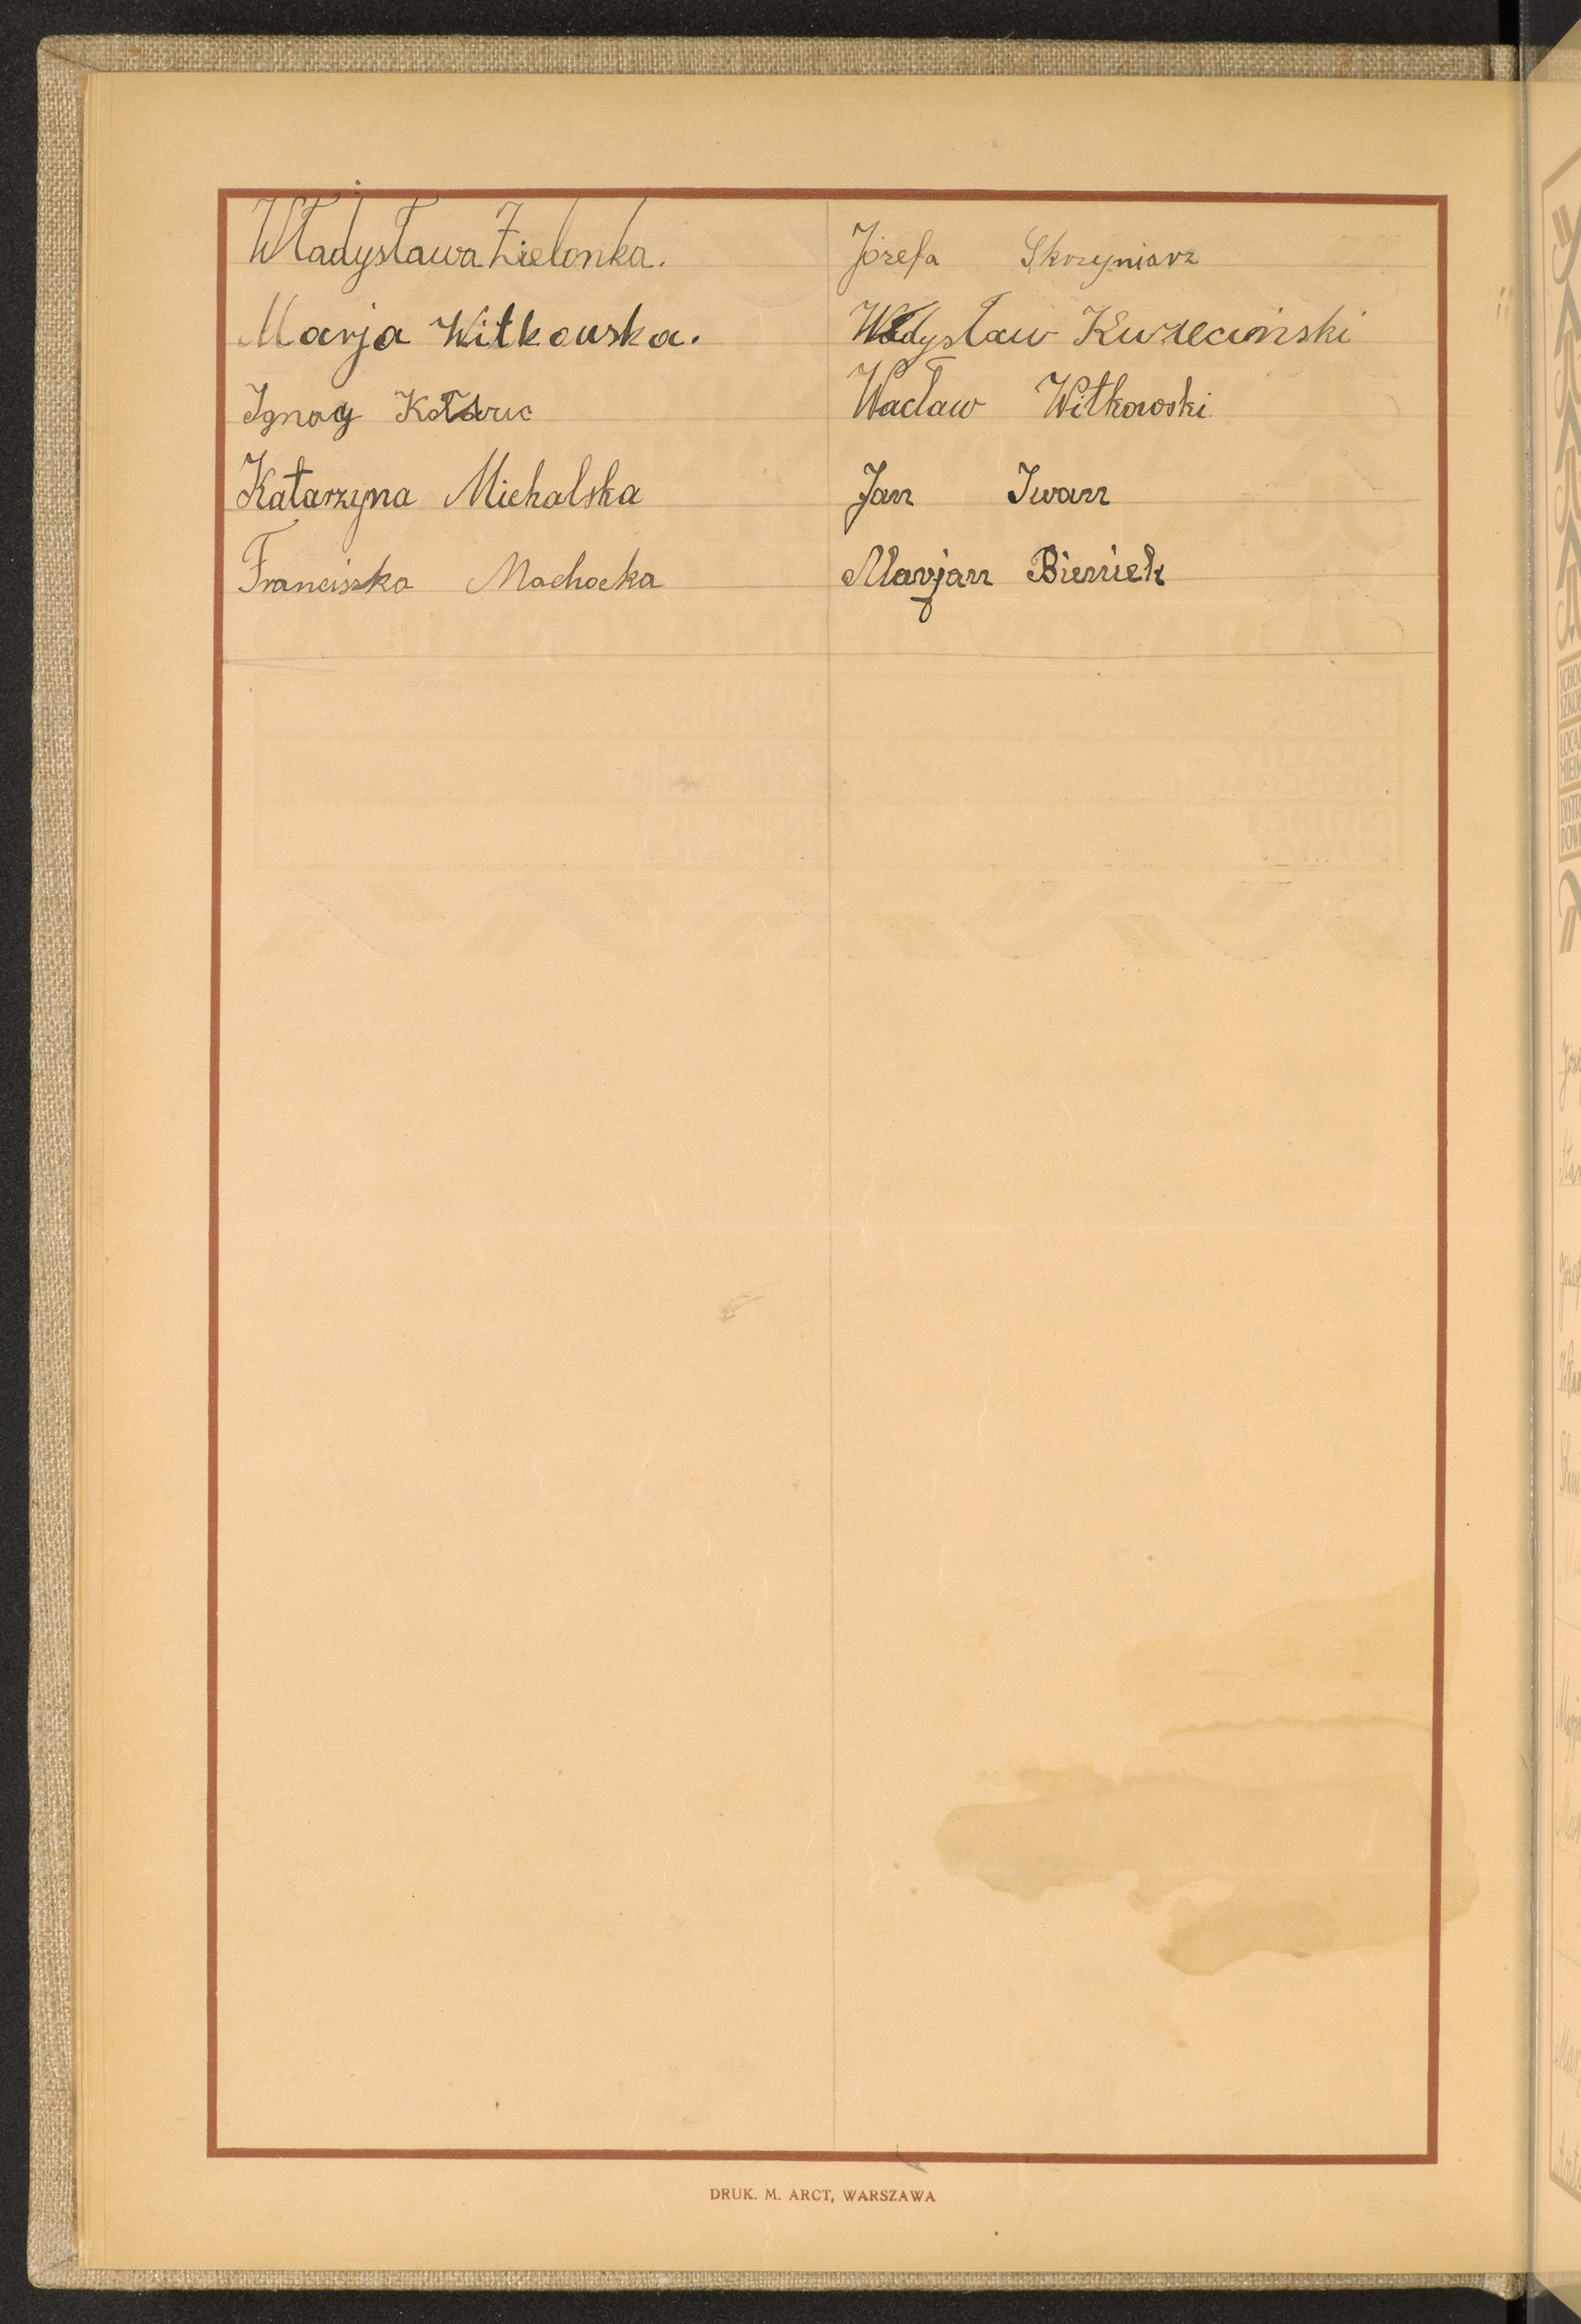 Władysława Zielonka.
Marja Witkowska.
Ignacy
Katarzyna Michalska
Franciszka Machocka
Józefa Skrzyniarz
Władysław
Wacław Witkowski
Jan Iwan
Marjan Bieniek
DRUK. M. ARCT, WARSZAWA